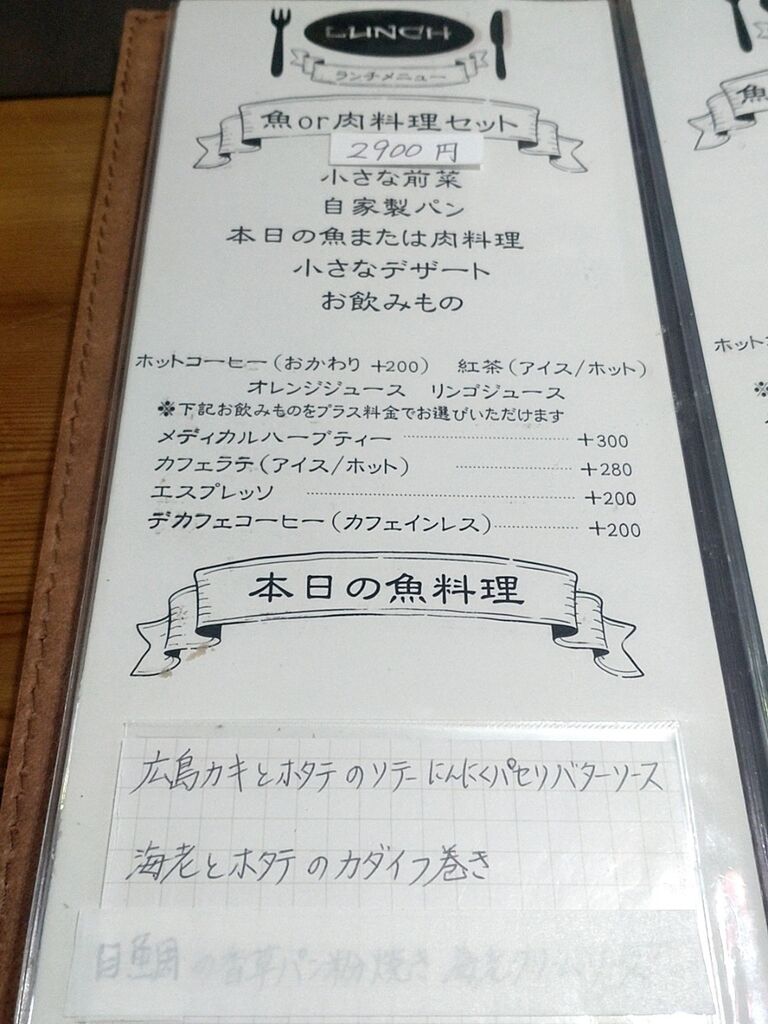 LUNCH
ランチメニュー
魚or肉料理セット
2900円
小さな前菜
自家製パン
本日の魚または肉料理
小さなデザート
お飲みもの
ホットコーヒー(おかわり +200) 紅茶(アイス/ホット)
オレンジジュース リンゴジュース
※下記お飲みものをプラス料金でお選びいただけます
メディカルハーブティー +300
カフェラテ(アイス/ホット) +280
エスプレッソ +200
デカフェコーヒー(カフェインレス) +200
本日の魚料理
広島カキとホタテのソテーにんにくパセリバターソース
海老とホタテのカダイフ巻き
目鯛の香草パン粉焼き
魚
ホット
※